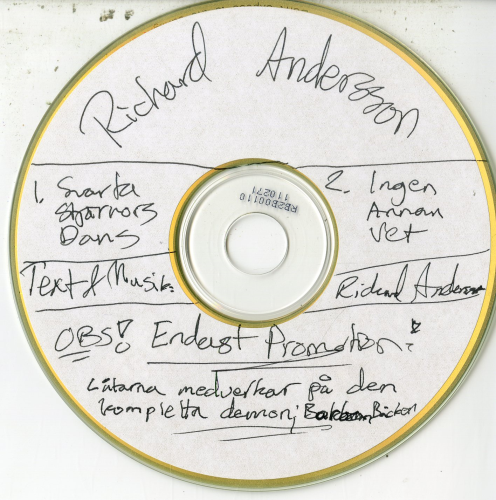 Richard Andersson
1. Svarta
Stjärnors
Dans
2. Ingen
Annan
Vet
RB2B001110
110271
Text & Musik:
Richard Andersson
OBS! Endast Promotion!
Låtarna medverkar på den
kompletta demon; Bäcken